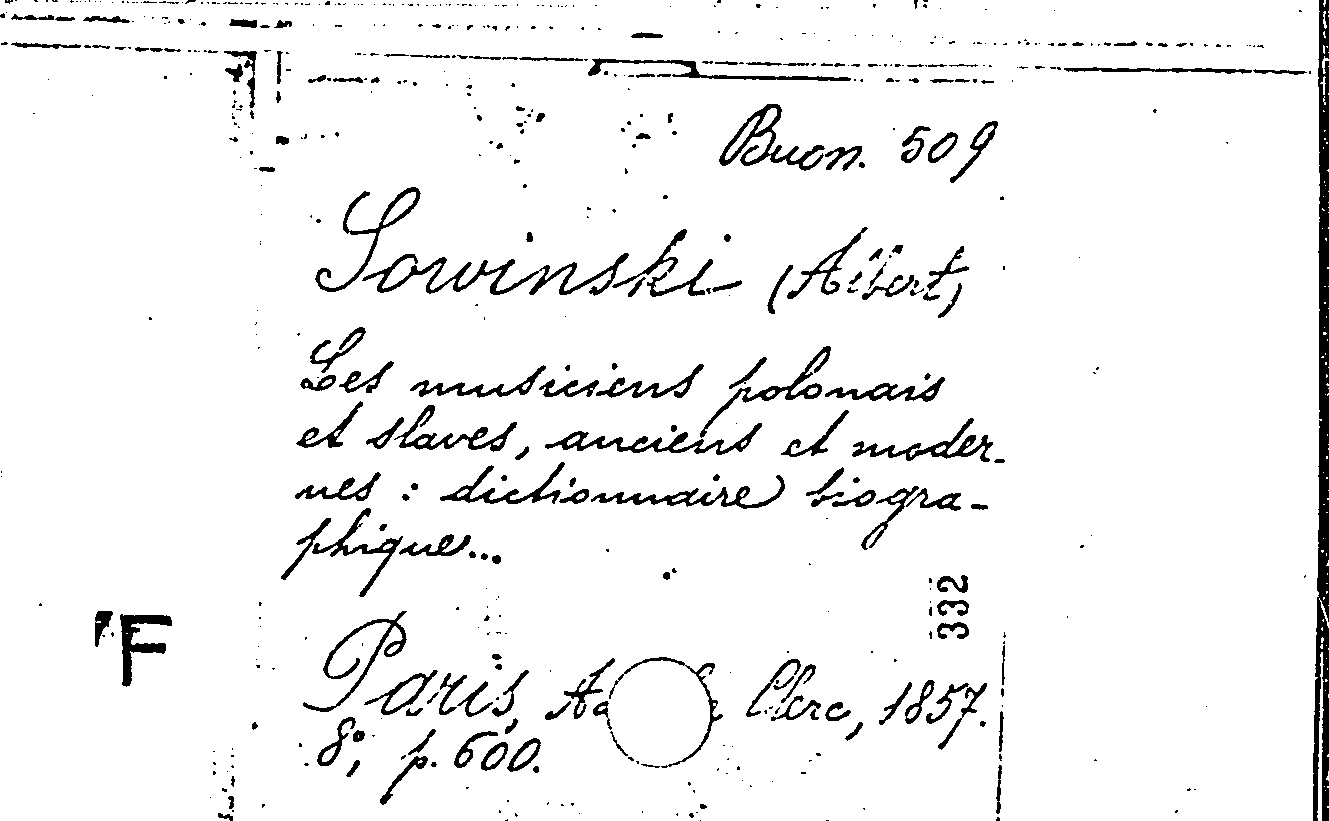 Buon. 509
Sowinski (Albert)
Les musiciens polonais
et slaves, anciens et moder-
nes : dictionnaire biogra-
phique...
332
F
Paris, Clerc, 1857.
8°, p. 600.